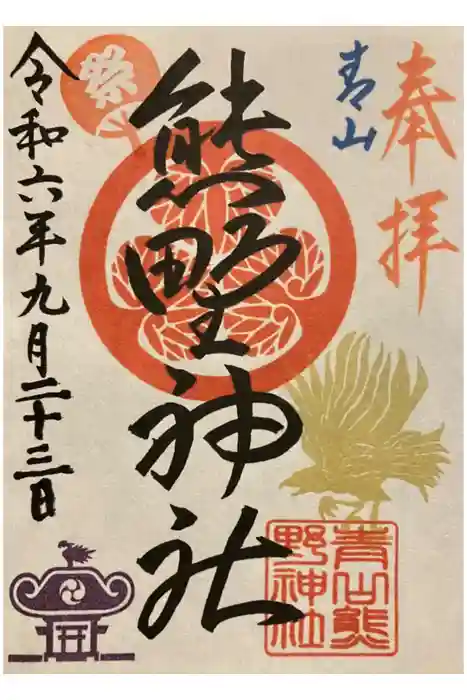 奉拝
青山
熊野神社
祭
令和六年九月二十三日
青山熊
野神社